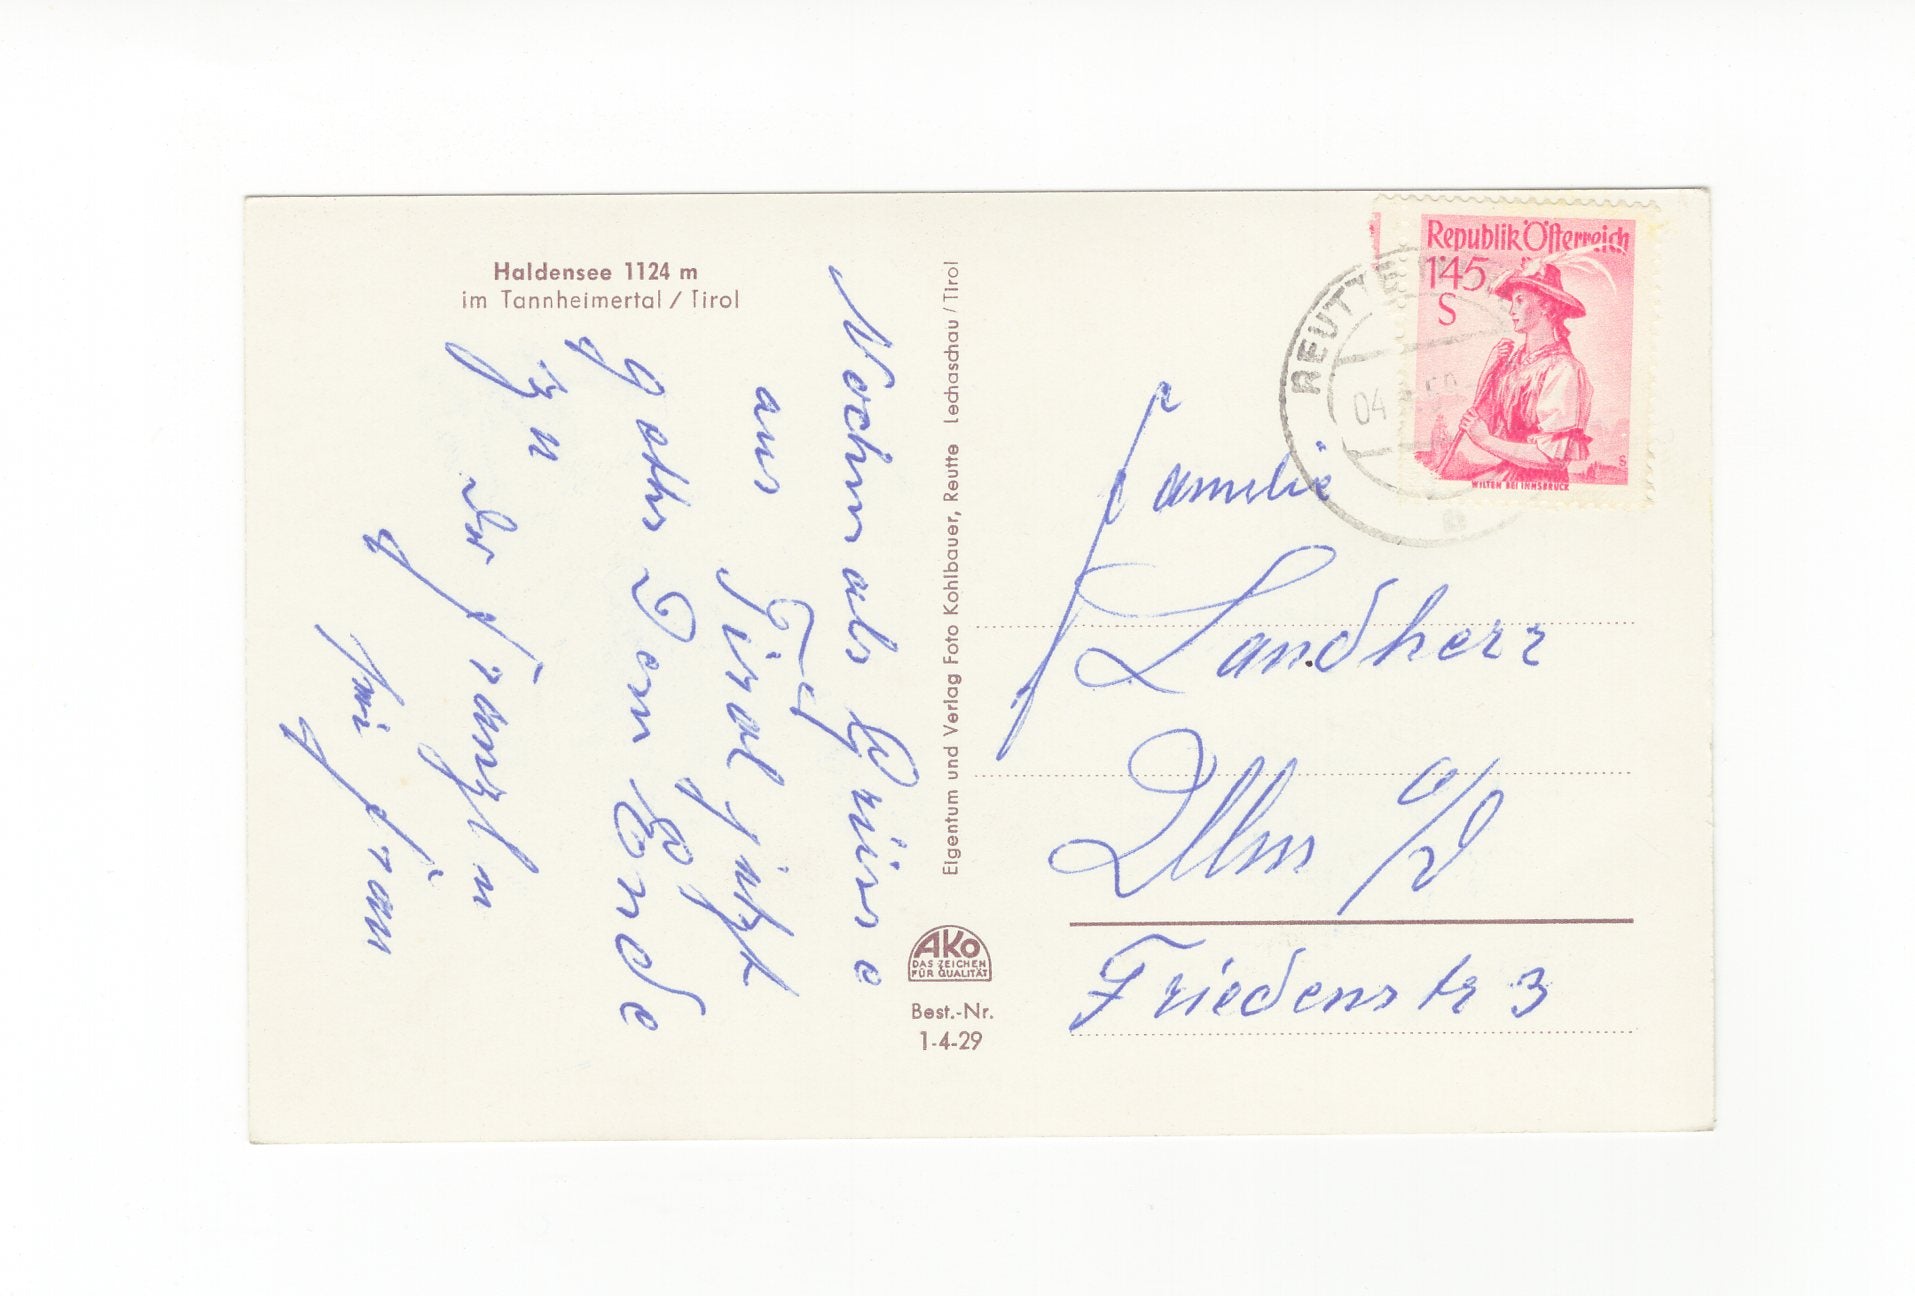 Haldensee 1124 m
im Tannheimertal / Tirol
Nochmals Grüsse
aus Tirol jetzt
gehts dem Ende
zu
Eigentum und Verlag Foto Kohlbauer, Reutte Lechaschau / Tirol
AKO
DAS ZEICHEN
FÜR QUALITÄT
Best.-Nr.
1-4-29
Republik Österreich
1'45
S
WILTEN BEI INNSBRUCK
REUTTE
04
Familie
Landherr
Ulm a/D
Friedenstr 3